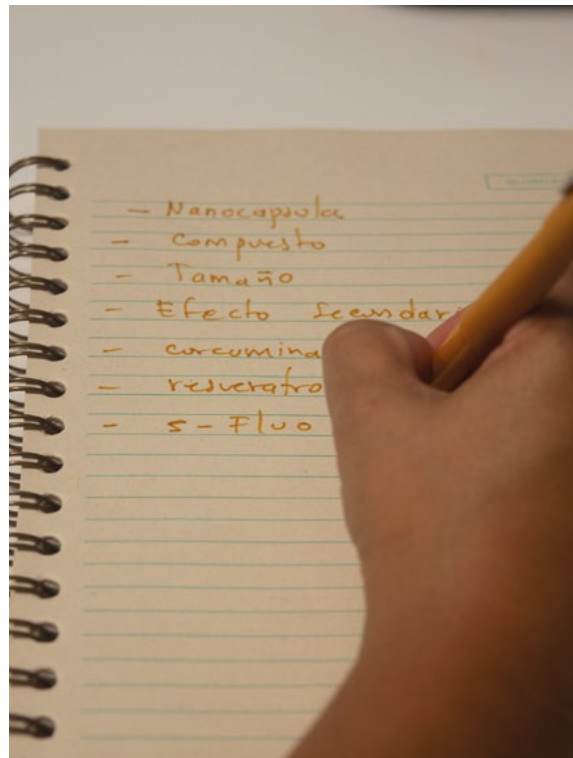 - Nanocapsula
- Compuesto
- Tamaño
- Efecto Secundari
- curcumina
- resveratro
- 5-Fluo